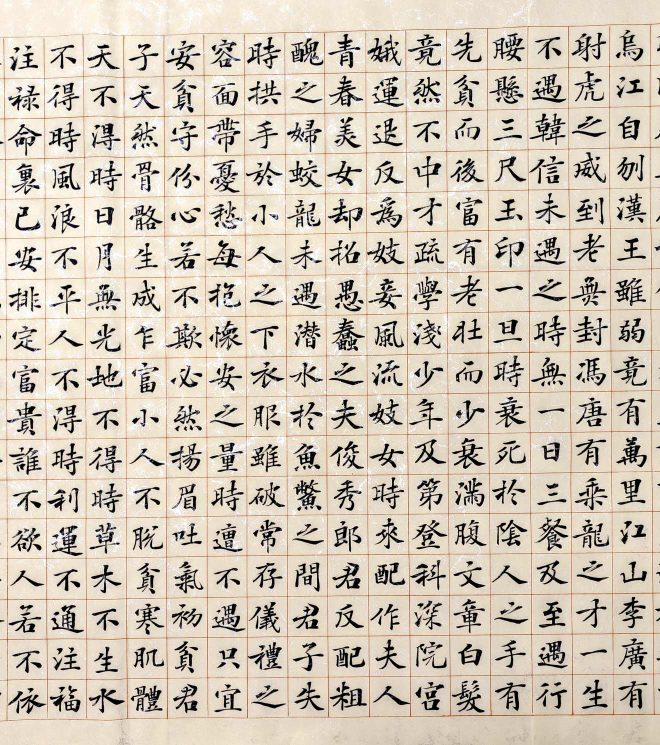 烏江自刎漢王雖弱竟有萬里江山李廣有
射虎之威到老無封馮唐有乘龍之才一生
不遇韓信未遇之時無一日三餐及至遇行
腰懸三尺玉印一旦時衰死於陰人之手有
先貧而後富有老壯而少衰滿腹文章白髮
竟然不中才疏學淺少年及第登科深院宮
娥運退反爲妓妾風流妓女時來配作夫人
青春美女却招愚蠢之夫俊秀郎君反配粗
醜之婦蛟龍未遇潛水於魚鱉之間君子失
時拱手於小人之下衣服雖破常存儀禮之
容面帶憂愁每抱懷安之量時遭不遇只宜
安貧守份心若不欺必然揚眉吐氣初貧君
子天然骨骼生成乍富小人不脫貧寒肌體
天不得時日月無光地不得時草木不生水
不得時風浪不平人不得時利運不通注福
注祿命裏已安排定富貴誰不欲人若不依